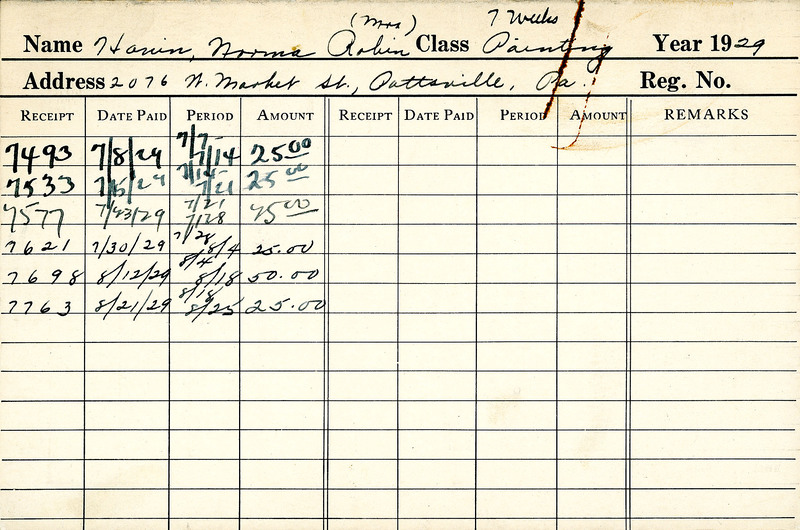 (Mrs) 7 Weeks
Name Hanin, Norma Robin Class Painting Year 1929
Address 2076 W. Market St., Pottsville, Pa. Reg. No.
RECEIPT DATE PAID PERIOD AMOUNT RECEIPT DATE PAID PERIOD AMOUNT REMARKS
7493 7/8/29 7/7- 7/14 25.00
7533 7/15/29 7/14- 7/21 25.00
7577 7/23/29 7/21 7/28 25.00
7621 7/30/29 7/28 8/4 25.00
7698 8/12/29 8/4 8/18 50.00
7763 8/21/29 8/18 8/25 25.00